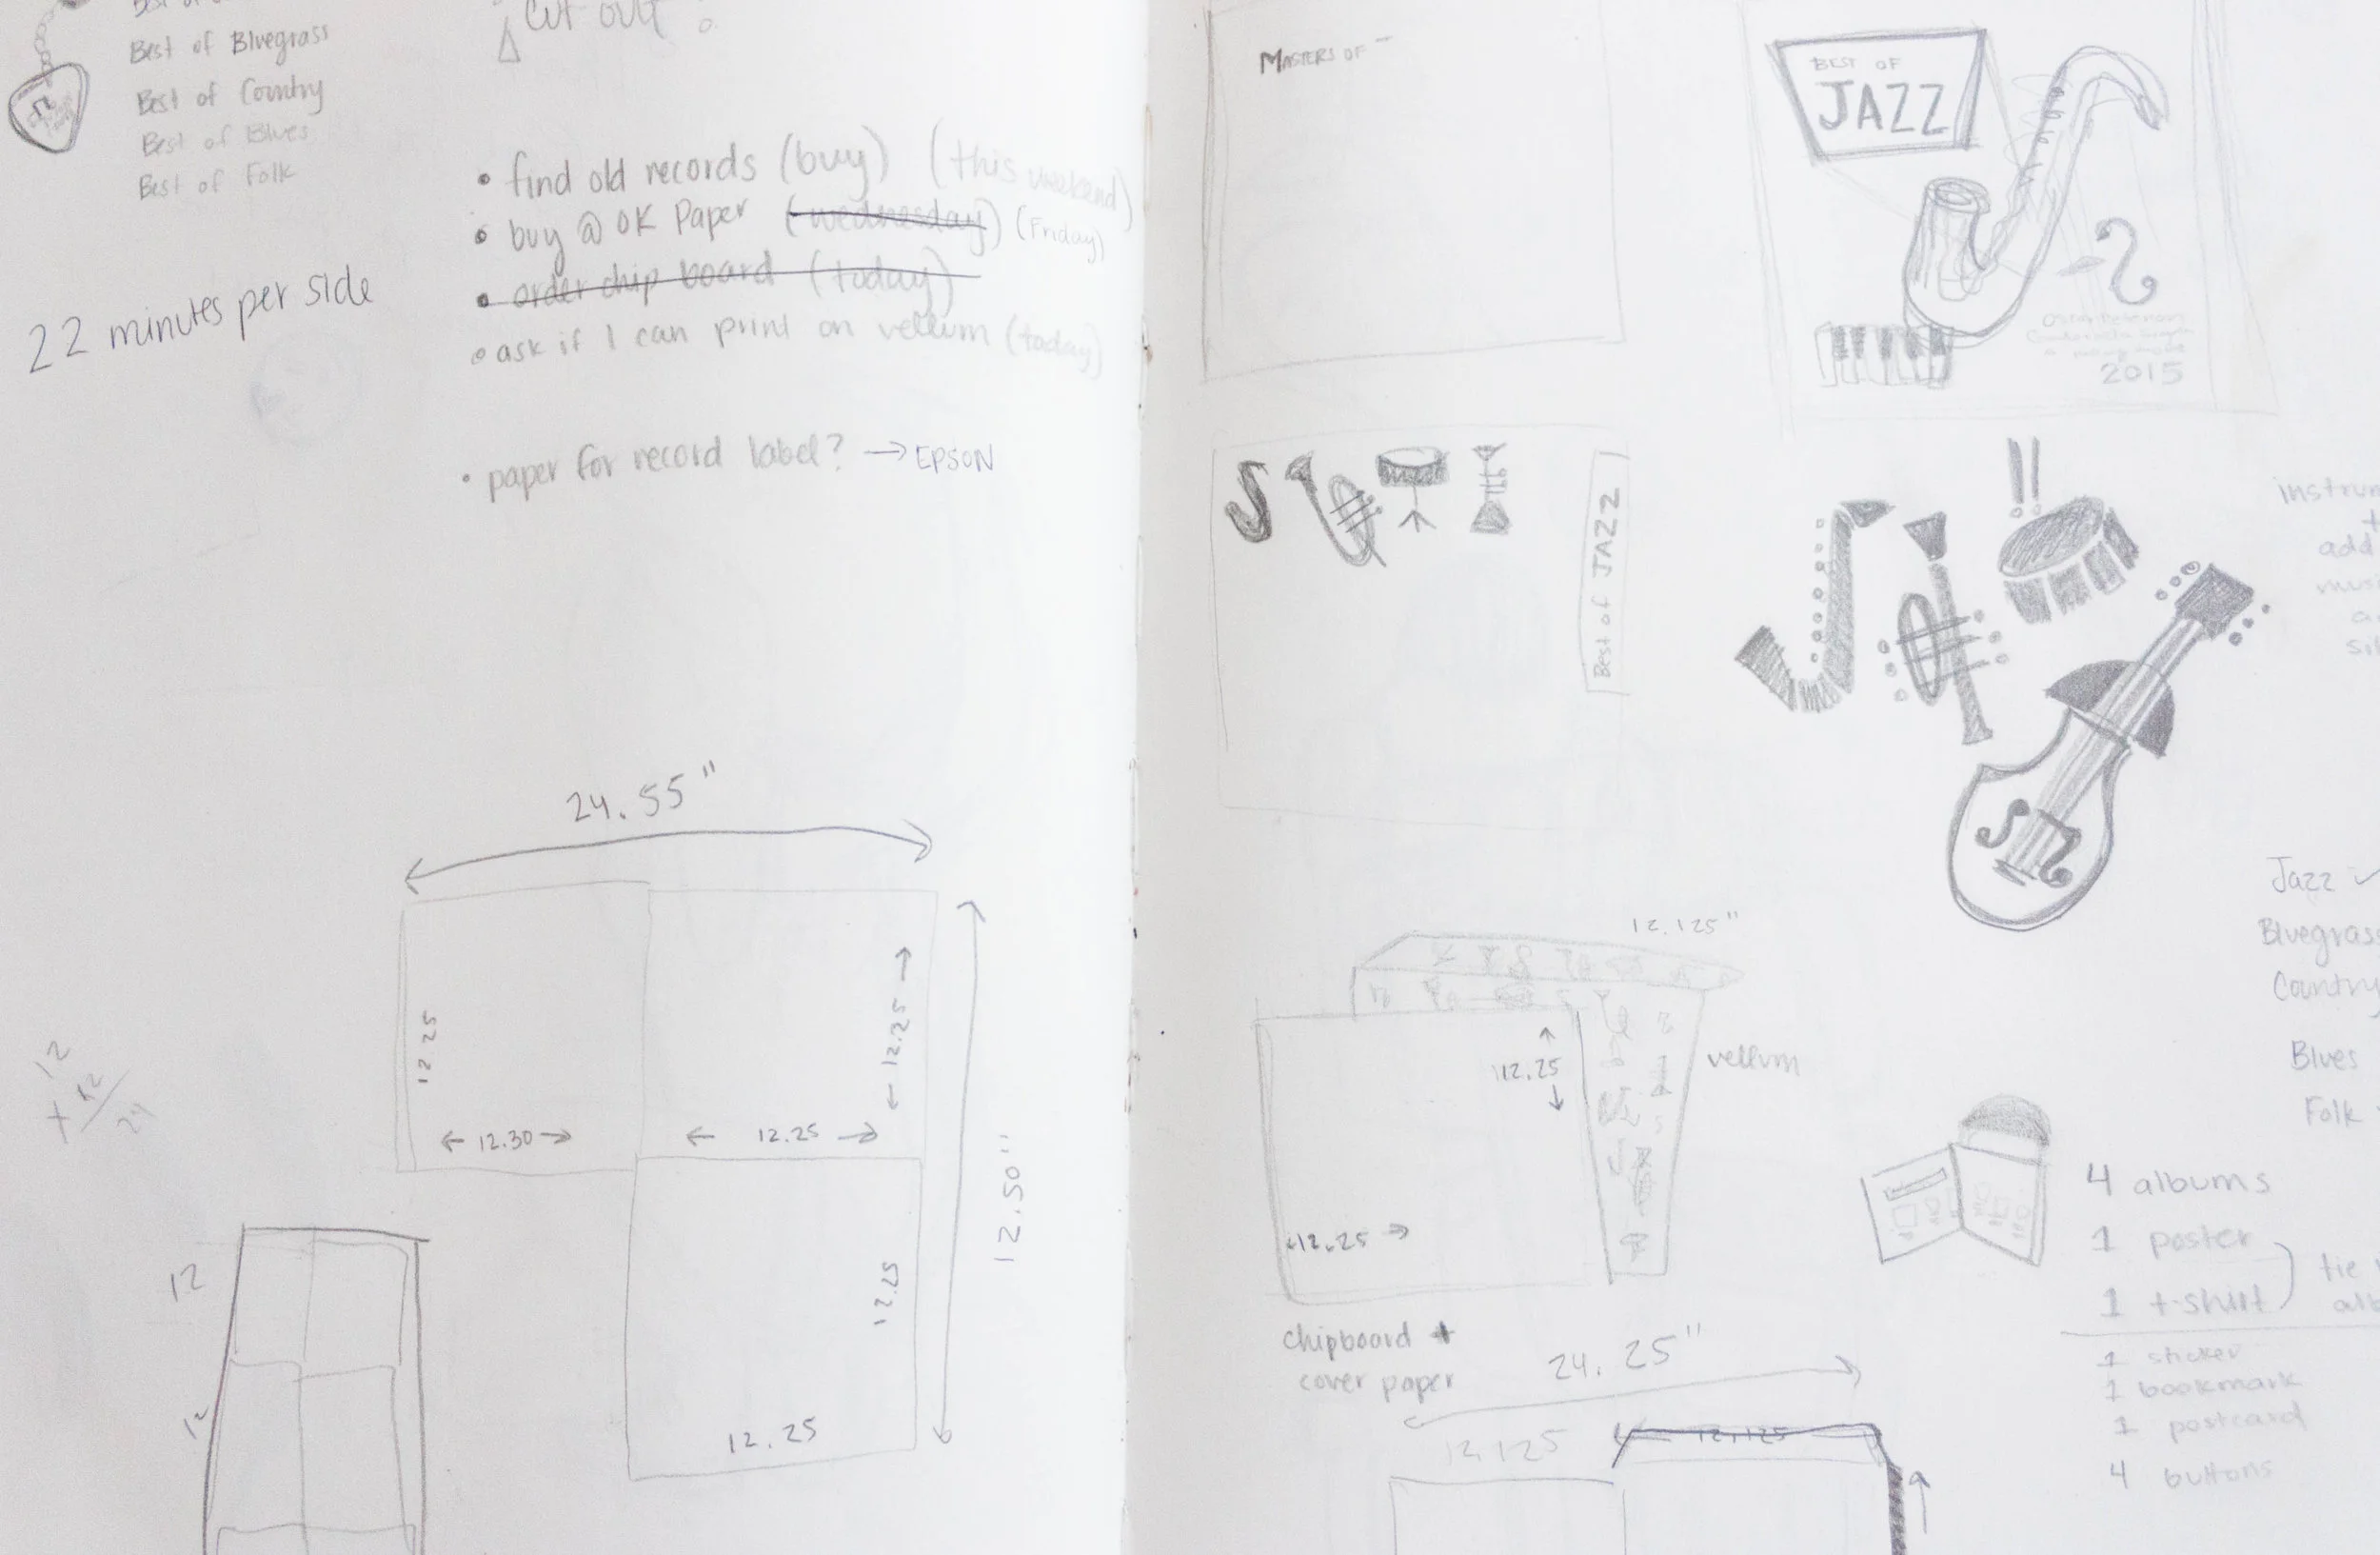 Best of
Best of Bluegrass
Best of Country
Best of Blues
Best of Folk
cut out
22 minutes per side
• find old records (buy) (this weekend)
• buy @ OK Paper (wednesday) (Friday)
• order chip board (today)
• ask if I can print on vellum (today)
• paper for record label? → EPSON
24.55"
12.25
12.25
12.30
12.25
12.50"
12.25
12.25
12
+ 12
24
12
12
MASTERS OF -
BEST OF
JAZZ
2015
Best of JAZZ
instrum
add
musi
Jazz ✓
Bluegrass
Country
Blues
Folk
12.125"
12.25
vellum
12.25
chipboard +
cover paper
24.25"
12.125
12.125
4 albums
1 poster
1 t-shirt
tie
alb
1 sticker
1 bookmark
1 postcard
4 buttons